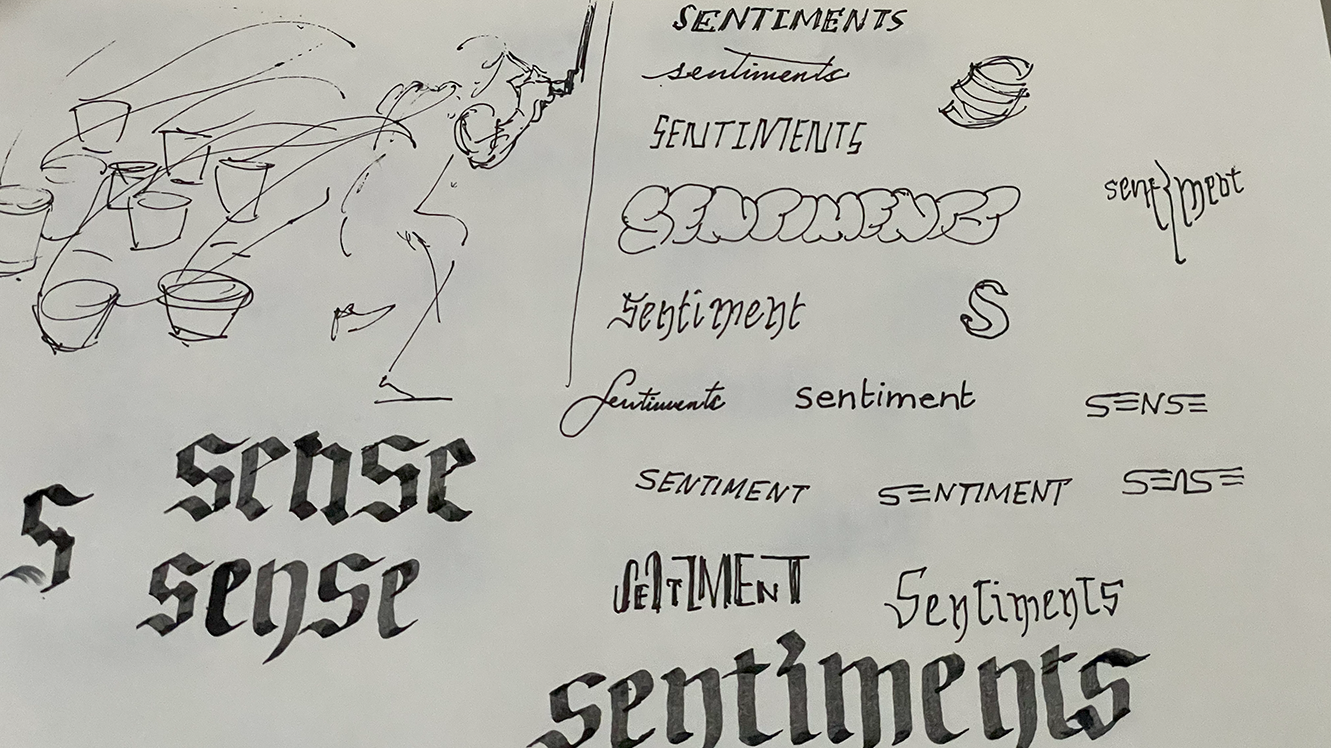 SENTIMENTS
sentiments
SENTIMENTS
sentiment
SENTIMENTS
Sentiment S
Sentiments sentiment SENSE
SENTIMENT SENTIMENT SENSE
sense
S
SENTIMENT Sentiments
sense
sentiments